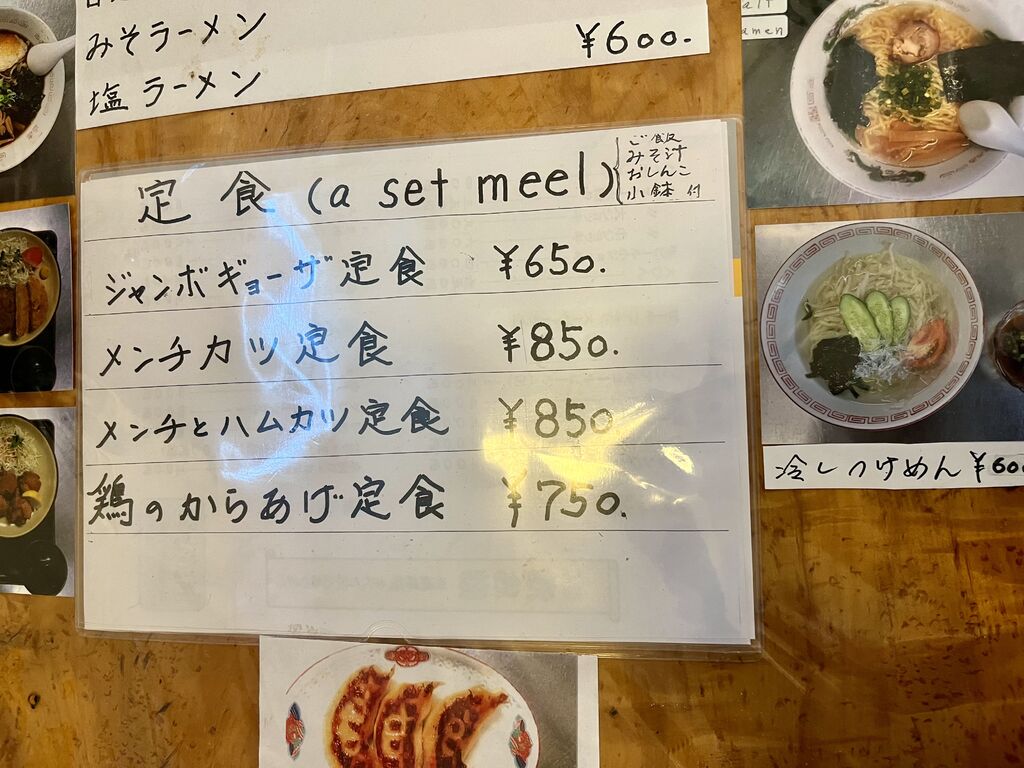 みそラーメン
塩ラーメン ¥600.
alt
amen
定食 (a set meel)
ご飯
みそ汁
おしんこ
小鉢 付
ジャンボギョーザ定食 ¥650.
メンチカツ定食 ¥850.
メンチとハムカツ定食 ¥850
鶏のからあげ定食 ¥750.
冷しつけめん ¥600